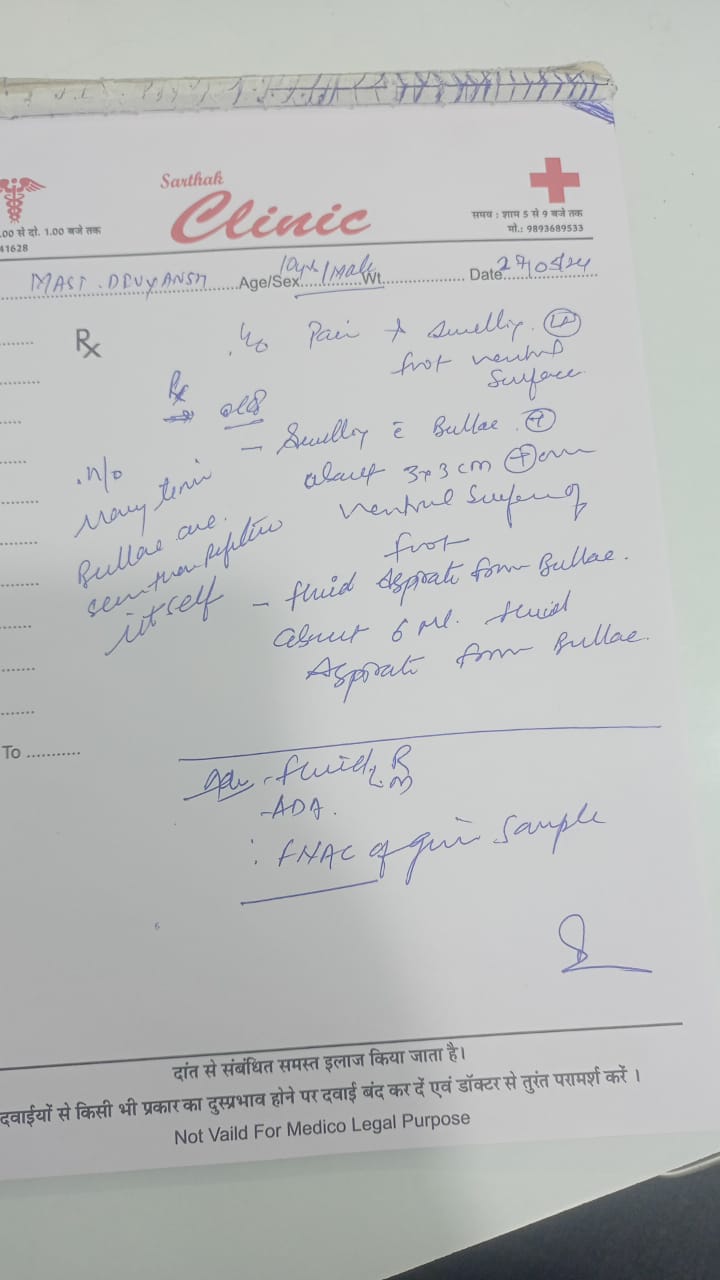 Sarthak
Clinic
.00 से दो. 1.00 बजे तक
41628
समय : शाम 5 से 9 बजे तक
मो.: 9893689533
MAST. DEVYANSH Age/Sex 10yrs/Male Wt. Date 29/05/24
Rx
Pain + Swelling
foot ventral
Surface
Rx
- Swelling c Bullae +
about 3x3 cm +
ventral Surface of
foot
.n/o
Many
Bullae are
itself
- fluid Aspirate from Bullae.
about 6 ml. fluid
Aspirate from Bullae.
To
Adv - fluid R/m
- ADA.
: FNAC of given Sample
दांत से संबंधित समस्त इलाज किया जाता है।
दवाईयों से किसी भी प्रकार का दुस्प्रभाव होने पर दवाई बंद कर दें एवं डॉक्टर से तुरंत परामर्श करें ।
Not Vaild For Medico Legal Purpose